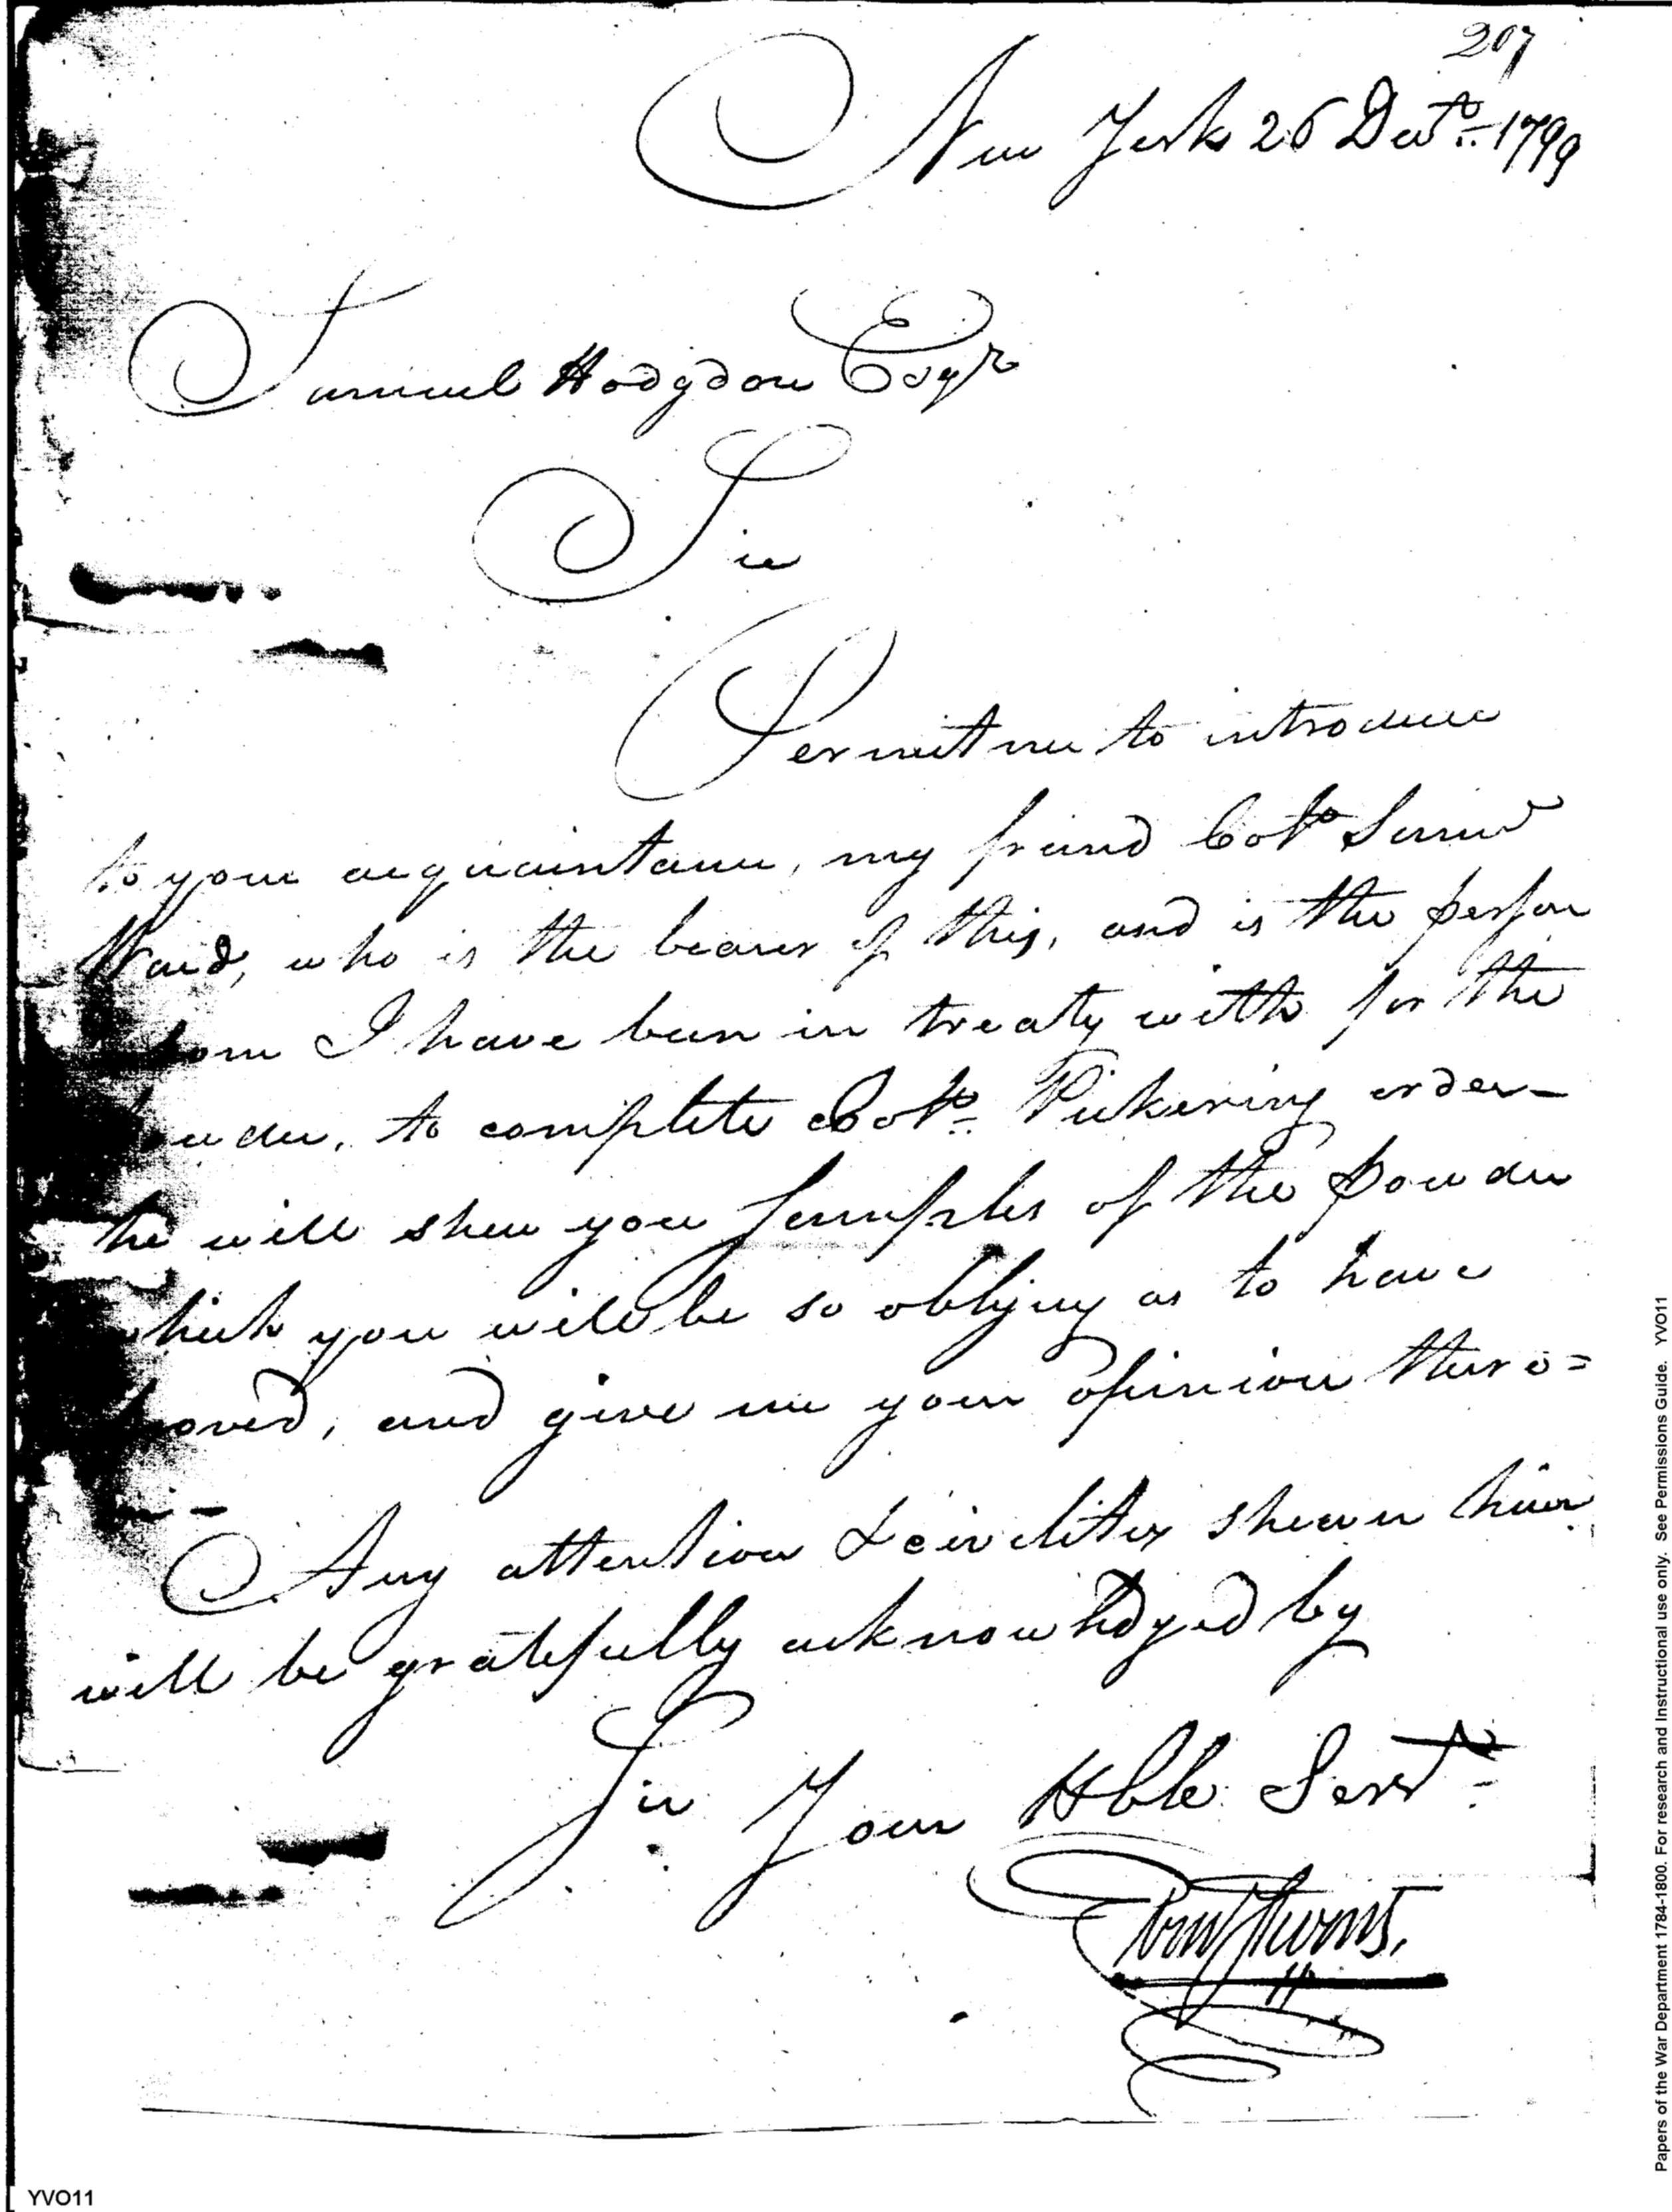 207
New York 26 Decr. 1799
Samuel Hodgdon Esqr
Sir
Permit me to introduce
to your acquaintance, my friend Colo Saml
Ward, who is the bearer of this, and is the person
whom I have been in treaty with for the
powder, to complete Colo. Pickering order -
he will shew you samples of the powder
which you will be so obliging as to have
proved, and give me your opinion there=
on -
Any attention & civility shewn him
will be gratefully acknowledged by
Sir Your Hble Servt
YVO11
Papers of the War Department 1784-1800. For research and Instructional use only. See Permissions Guide. YVO11